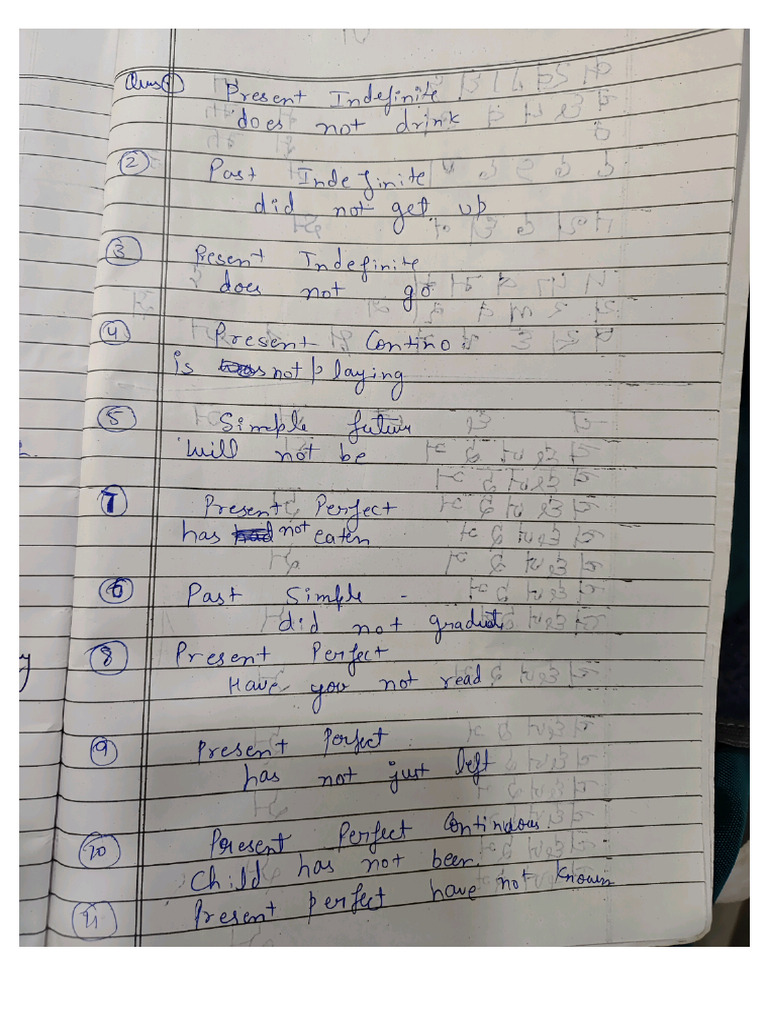 Ques ① Present Indefinite.
does not drink
② Past Indefinite
did not get up
③ Present Indefinite
does not go
④ Present Contino.
is not playing
⑤ Simple future
will not be
⑦ Present Perfect
has not eaten
⑥ Past Simple -
did not graduate
⑧ Present Perfect
Have you not read
⑨ Present Perfect
has not just left
⑩ Present Perfect continuous.
Child has not been
⑪ Present perfect have not known